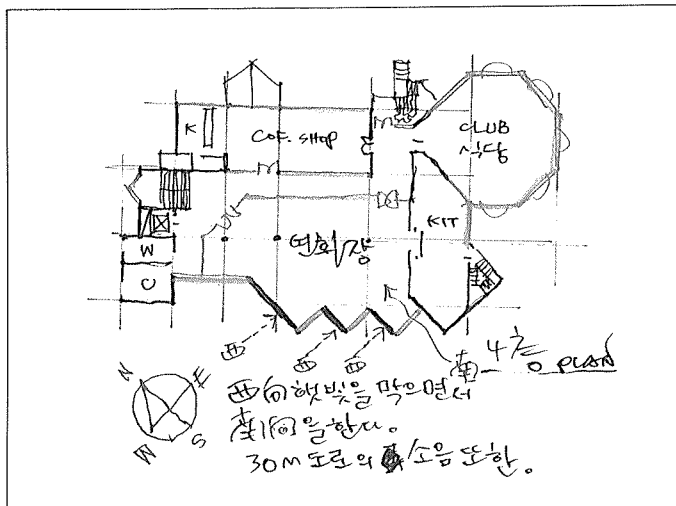 K
COF. SHOP
CLUB
식당
KIT
연회장
W
C
西
西
西
南
4층 PLAN
N
E
W
S
西向햇빛을 막으면서
南向을 한다.
30M 도로의 소음 또한.